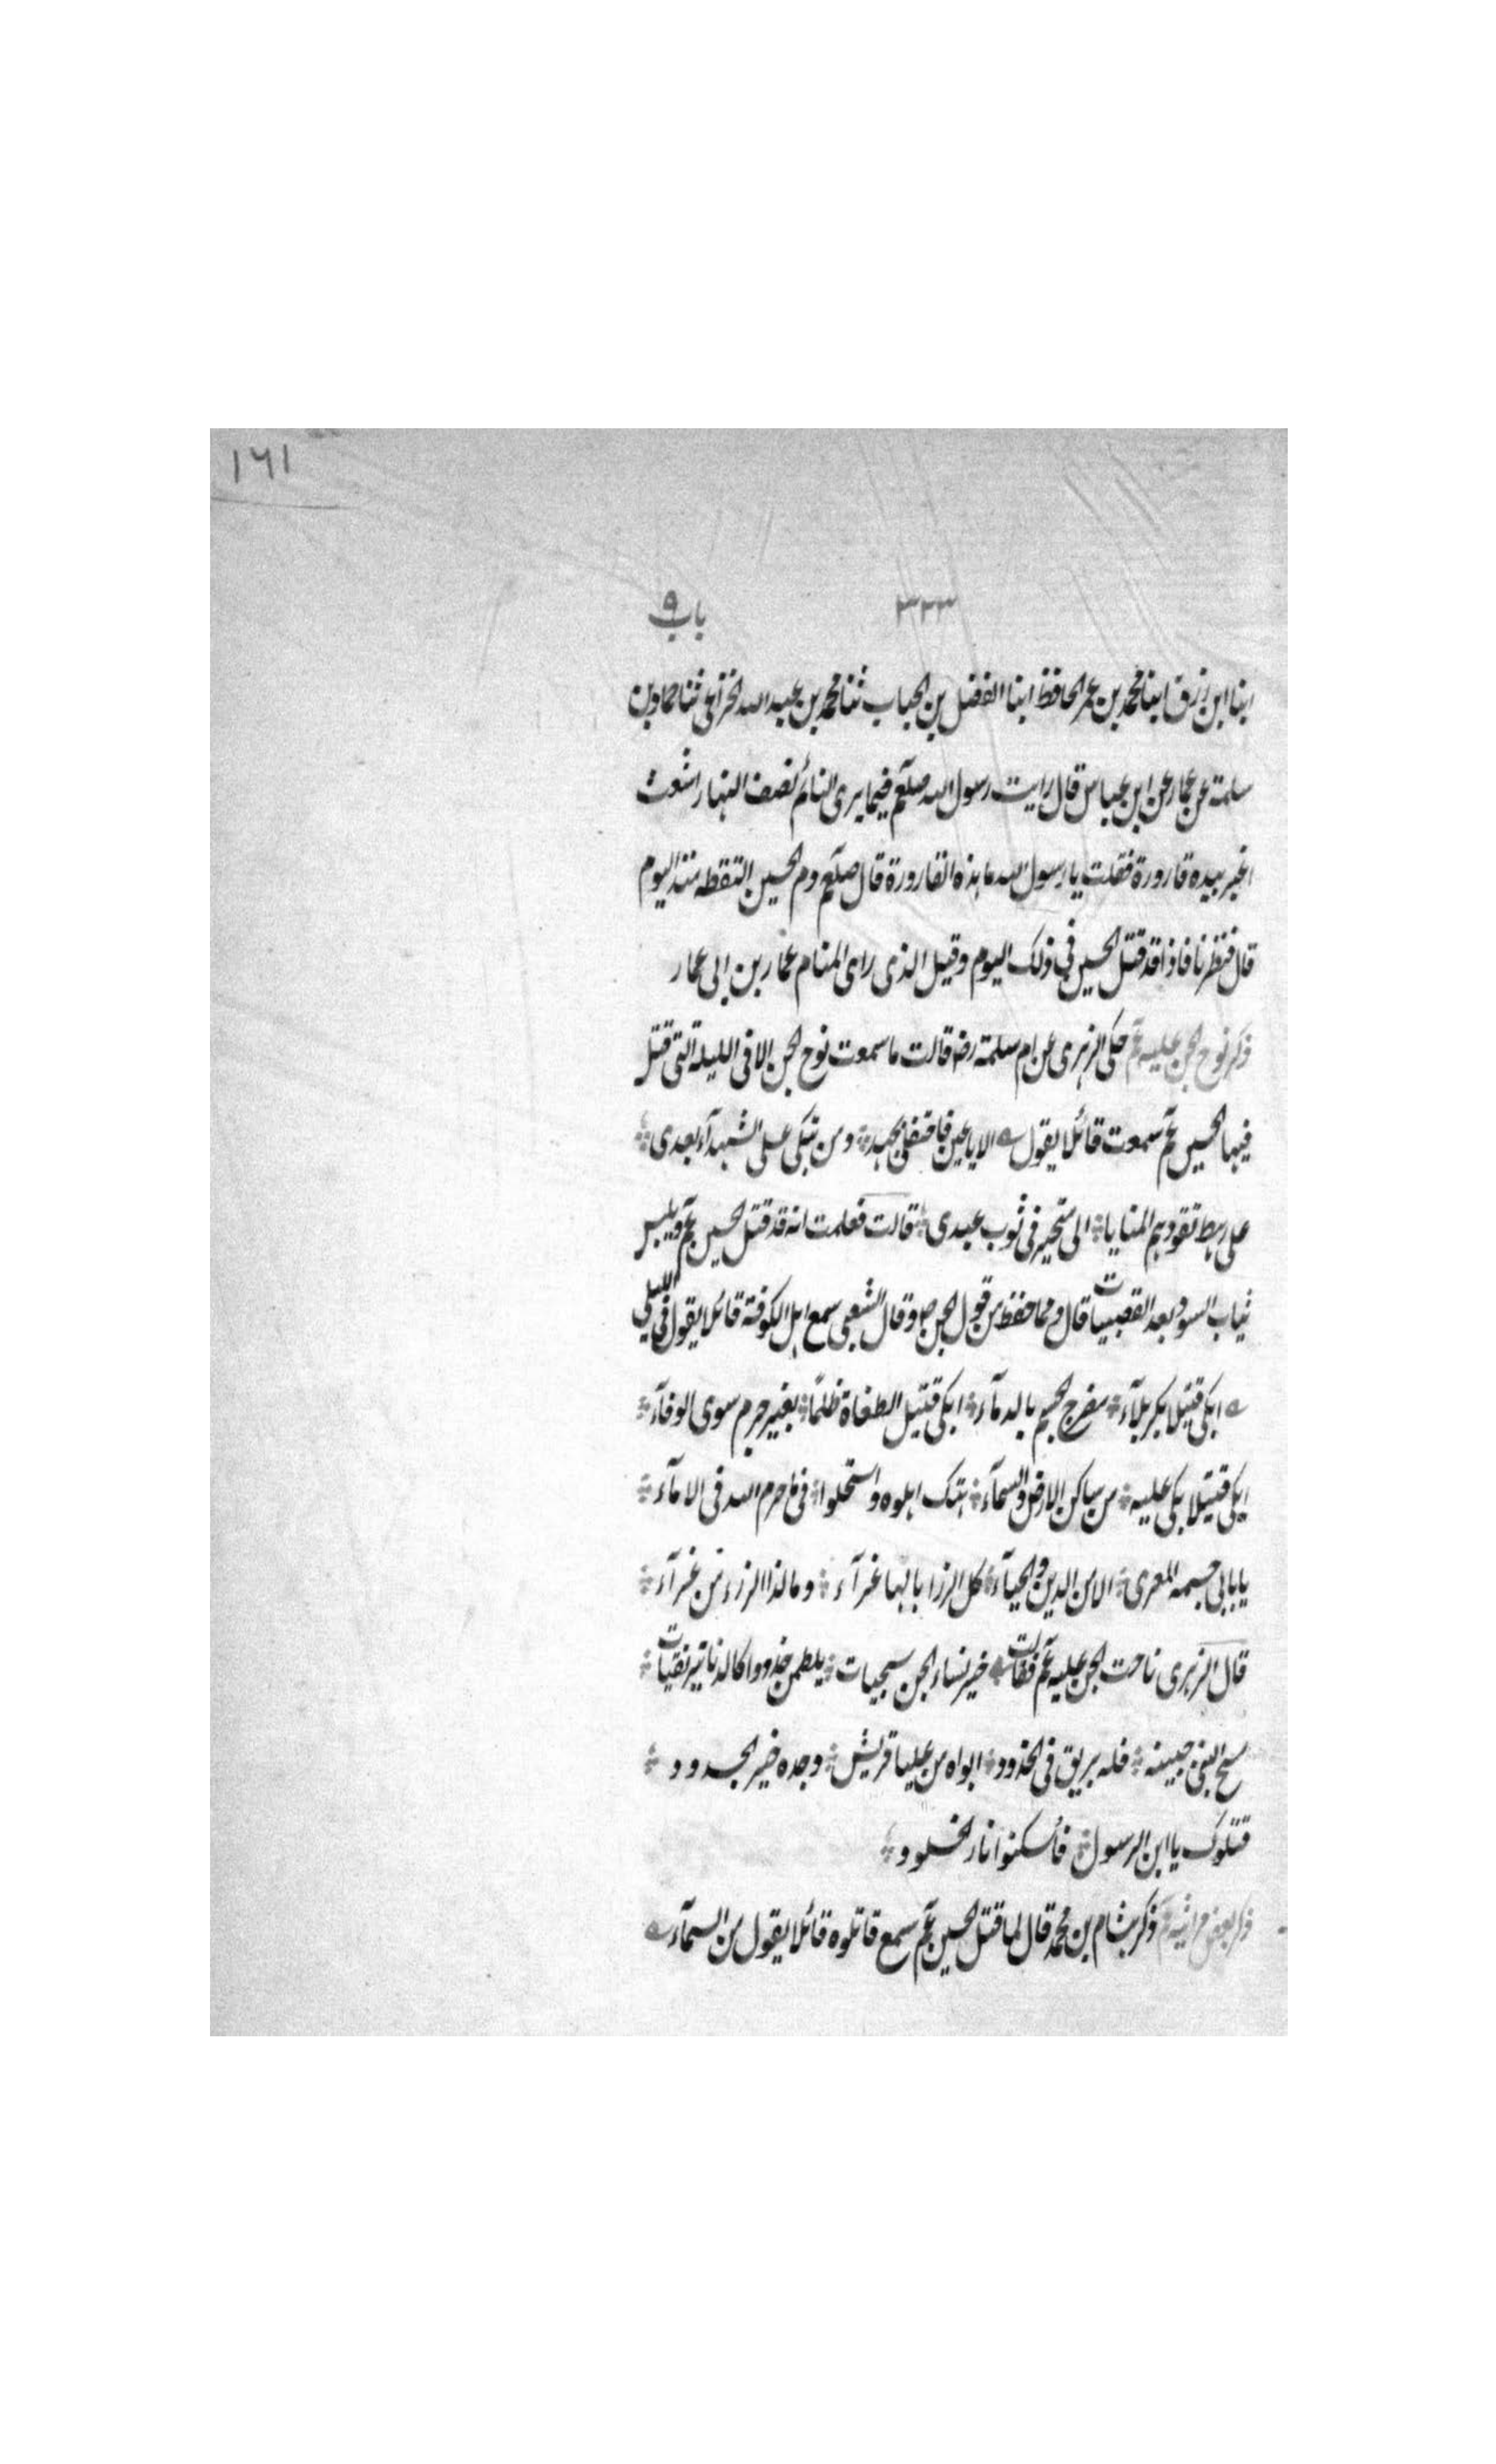 ١٦١
٣٢٣ باب ٩
ابنا ابن رزق ابنا محمد بن عمر الحافظ ابنا الفضل بن الحباب ثنا محمد بن عبد الله الخزاعی ثنا حماد بن
سلمة عن عمار عن ابن عباس قال رایت رسول الله صلعم فیما یری النائم نصف النهار اشعث
اغبر بیده قارورة فقلت یا رسول الله ما هذه القارورة قال صلعم دم الحسین التقطه منذ الیوم
قال فنظرنا فاذا قد قتل الحسین فی ذلک الیوم وقیل الذی رای المنام عمار بن ابی عمار
ذکر نوح الجن علیه عم حکی الزهری عن ام سلمة رضـ قالت ما سمعت نوح الجن الا فی اللیلة التی قتل
فیها الحسین عم سمعت قائلا یقول الا یا عین فاحتفلی بجهد ومن تبکی علی الشهدآء بعدی
علی رهط تقودهم المنایا الی متحیر فی ثوب عبدی قالت فعلمت انه قد قتل الحسین عم ویلبس
ثیاب السود بعد القصبیات قال ومما حفظ من قول الجن وقال الشعبی سمع اهل الکوفة قائلا یقول فی اللیل
ابکی قتیلا بکربلآء مضرج الجسم بالدمآء ابکی قتیل الطغاة ظلمًا بغیر جرم سوی الوفآء
ابکی قتیلا بکی علیه من ساکن الارض والسمآء هتک اهلوه واستحلوا فی ما حرم الله فی الامآء
یا بابی جسمه المعری الا من الدین والحیآء کل الرزایا لها عزآء وما لذا الرزء من عزآء
قال الزهری ناحت الجن علیه عم فقالت خیر نساء الجن سجیات یلطمن خدودا کالدنانیر نقیات
مسح النبی جبینه فله بریق فی الخدود ابواه من علیا قریش وجده خیر الجدود
قتلوک یا ابن الرسول فأسکنوا نار الخلود
ذکر بعض مراثیه عم ذکر هشام بن محمد قال لما قتل الحسین عم سمع قاتلوه قائلا یقول من السمآء